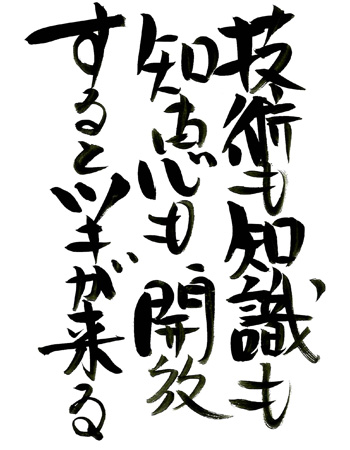 技術も知識も
知恵も開放
するとツキが来る